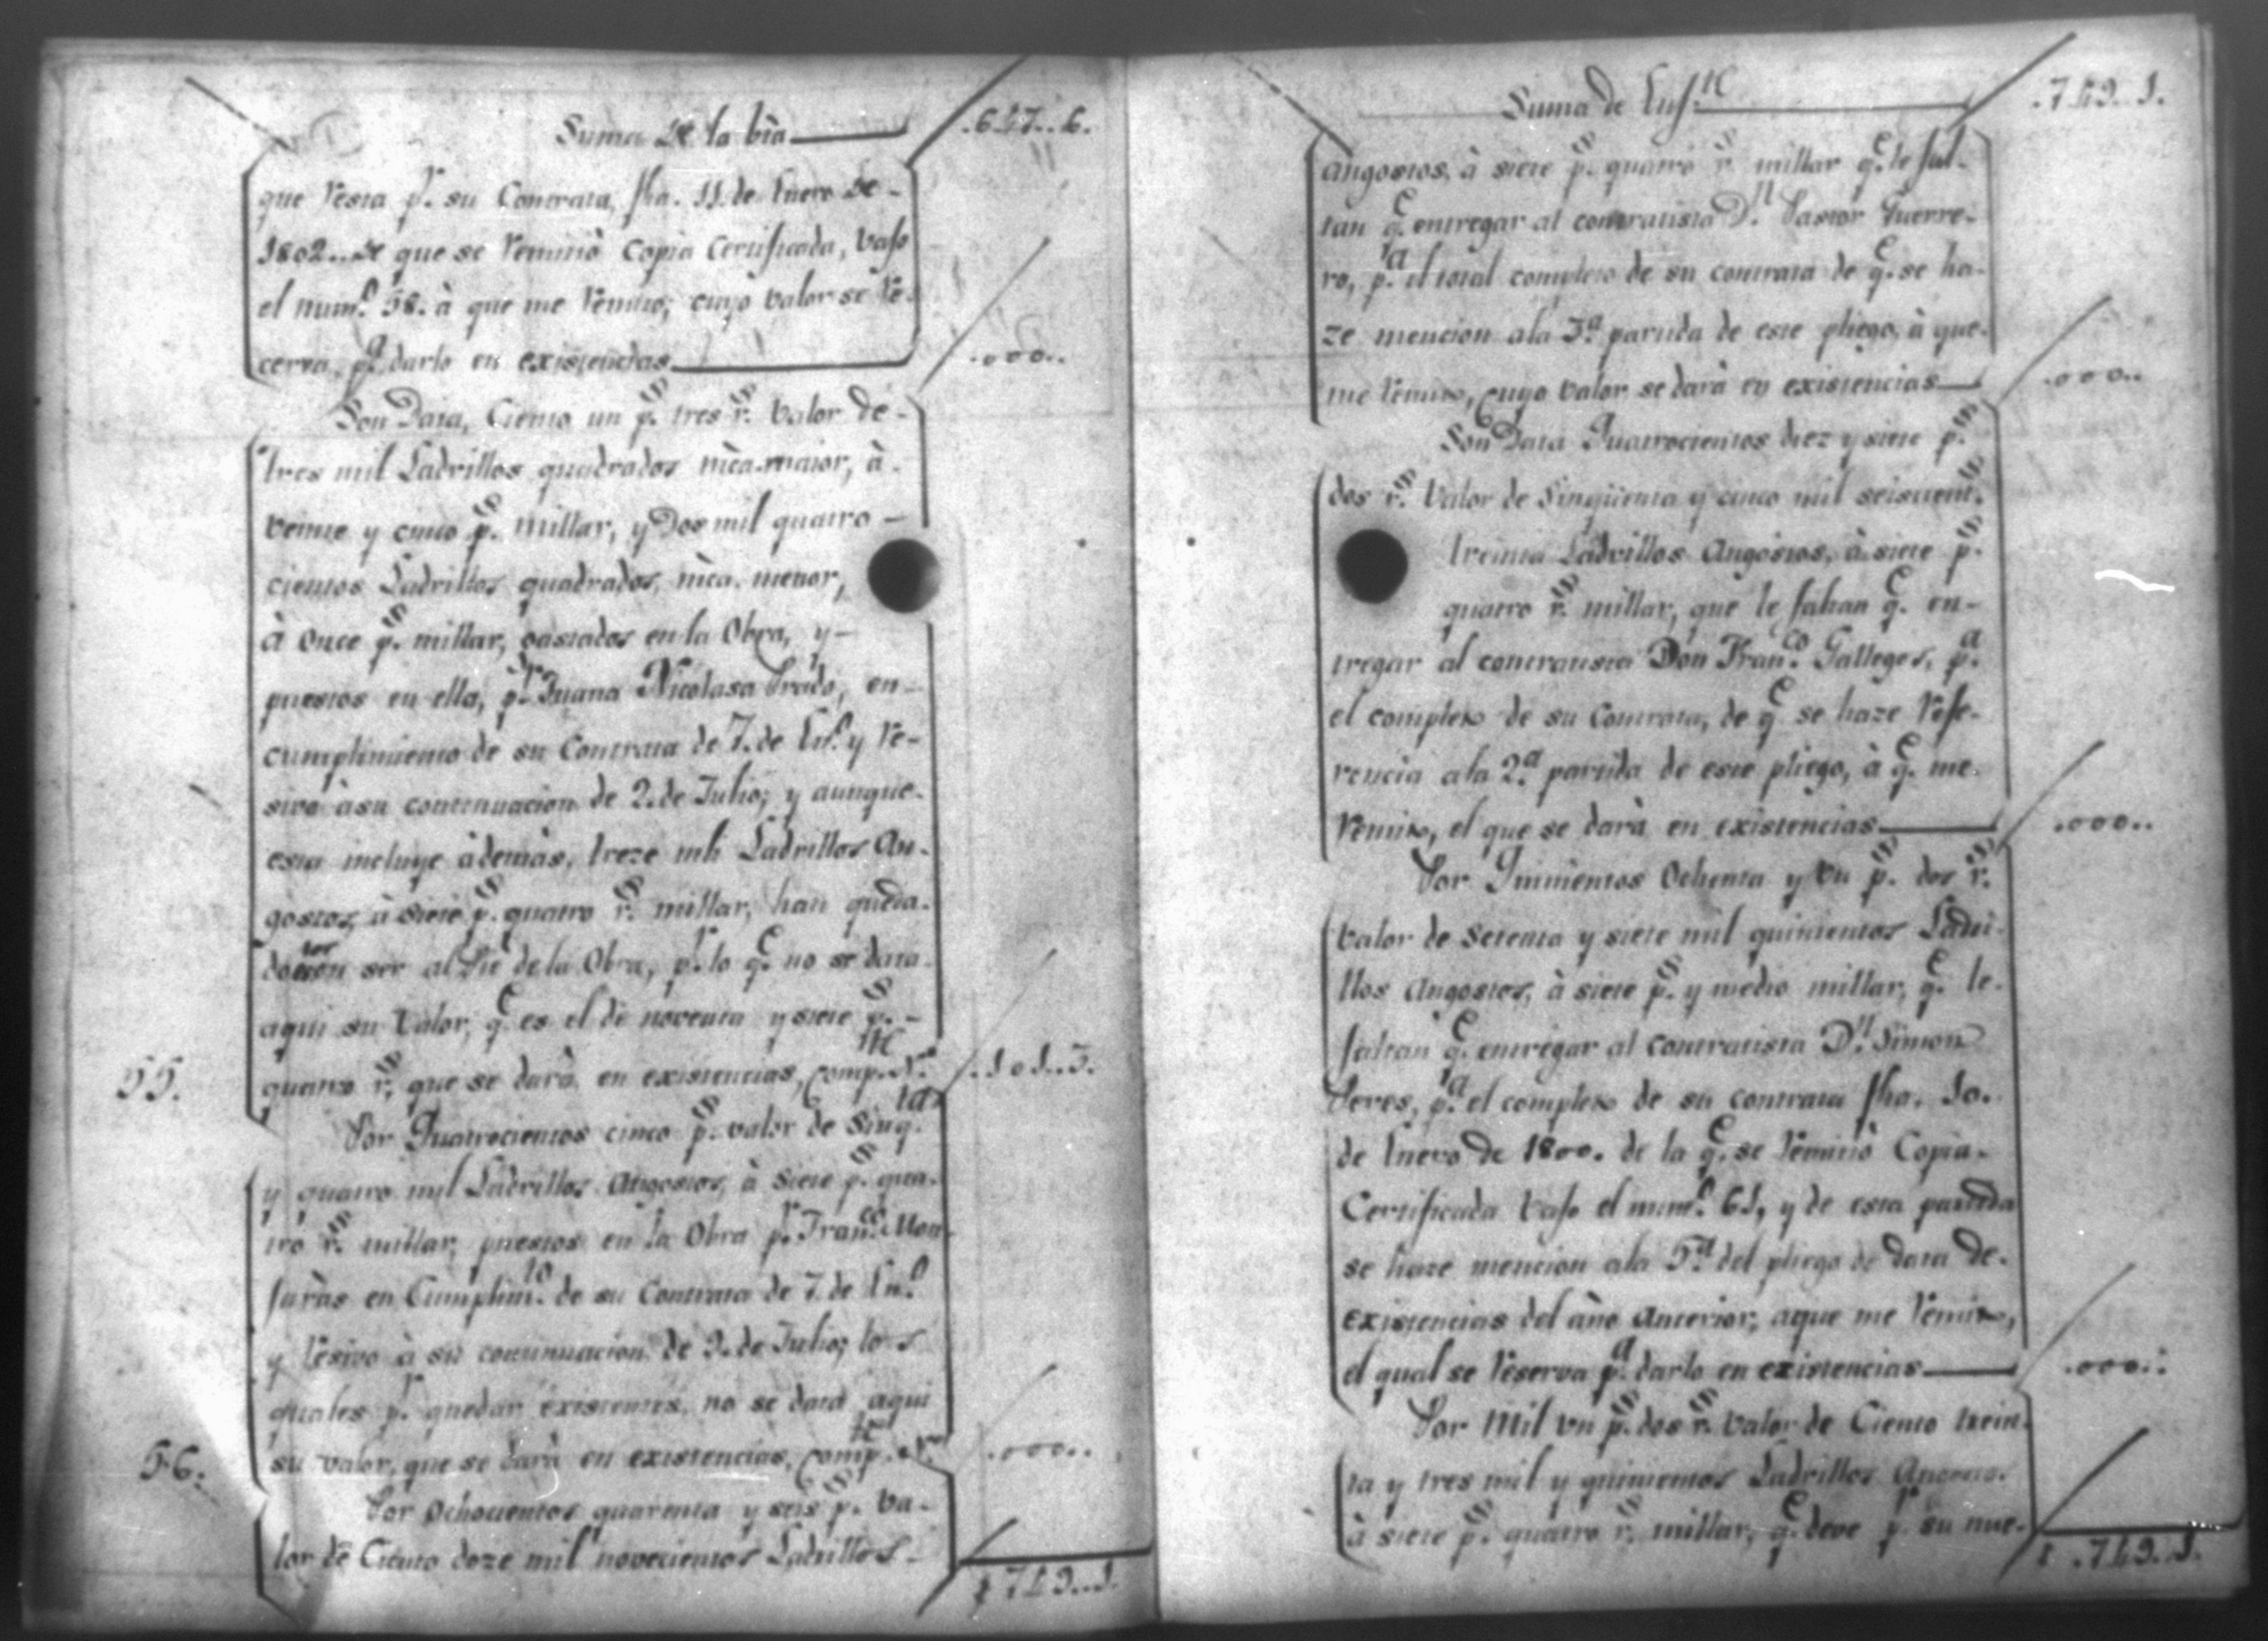 Suma de la bta .647..6.
que resta p.r su Contrata, fha. 11. de Enero de
1802.. de que se remitió Copia Certificada, vajo
el num.o 58. à que me remito; cuyo valor se re-
cerva, p.a darlo en existencias .000..
Son Data, Ciento un p.s tres r.s valor de
tres mil Ladrillos quadrados mca. maior, à
veinte y cinco p.s millar, y Dos mil quatro
cientos Ladrillos quadrados, mca. menor,
à once p.s millar, gastados en la Obra, y
puestos en ella, p.r Juana Nicolasa Prado, en
cumplimiento de su Contrata de 7. de En.o y re-
sivo à su continuacion de 2. de Julio; y aunque
esta incluye àdemàs, treze mil Ladrillos An-
gostos, à siete p.s quatro r.s millar, han queda-
do ser al Pie de la Obra, p.r lo q.e no se data
aqui su valor, q.e es el de noventa y siete p.s
55. quatro r.s que se darà en existencias, comp.te N.o .101..3.
Por Quatrocientos cinco p.s valor de Sinq.ta
y quatro mil Ladrillos Angostos, à siete p.s qua-
tro r.s millar, puestos en la Obra p.r Fran.co Mon-
faràs en Cumplim.to de su Contrata de 7. de En.o
y resivo à su continuacion de 9. de Julio; los
quales p.r quedar existentes, no se data aqui
56. su valor, que se darà en existencias, comp.te N.o .000..
Por Ochocientos quarenta y seis p.s va-
lor de Ciento doze mil novecientos Ladrillos
749..1.
Suma de Enf.te .749..1.
Angostos, à siete p.s quatro r.s millar q.e le fal-
tan q.e entregar al contratista D.n Pastor Guerre-
ro, p.a el total completo de su contrata de q.e se ha-
ze mencion ala 3.a partida de este pliego, à que
me remito, cuyo valor se darà en existencias .000..
Son Data Quatrocientos diez y siete p.s
dos r.s valor de Sinqüenta y cinco mil seiscient.s
treinta Ladrillos Angostos, à siete p.s
quatro r.s millar, que le faltan q.e en-
tregar al contratista Don Fran.co Gallegos, p.a
el completo de su Contrata, de q.e se haze refe-
rencia ala 2.a partida de este pliego, à q.e me
remito, el que se darà en existencias .000..
Por Quinientos Ochenta y un p.s dos r.s
valor de Setenta y siete mil quinientos Ladri-
llos Angostos, à siete p.s y medio millar, q.e le
faltan q.e entregar al contratista D.n Simon
Peres, p.a el completo de su contrata fha. 10.
de Enero de 1800. de la q.e se remitiò Copia
Certificada vajo el num.o 61, y de esta partida
se haze mencion ala 5.a del pliego de Data de
existencias del año Anterior, aque me remito,
el qual se reserva p.a darlo en existencias .000..
Por Mil un p.s dos r.s valor de Ciento trein-
ta y tres mil y quinientos Ladrillos Angostos
à siete p.s quatro r.s millar, q.e deve p.r su nue-
.749..1.